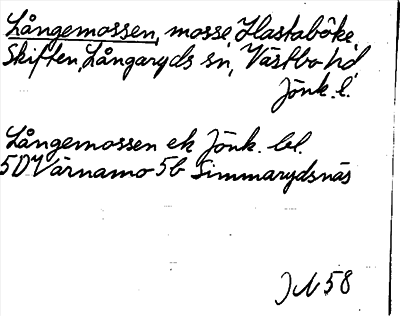 Långemossen, mosse, Hastaböke
Skiften, Långaryds sn, Västbo hd
Jönk. l.
Långemossen ek Jönk. bl.
5D Värnamo 5b Simmarydsnäs
JN 58